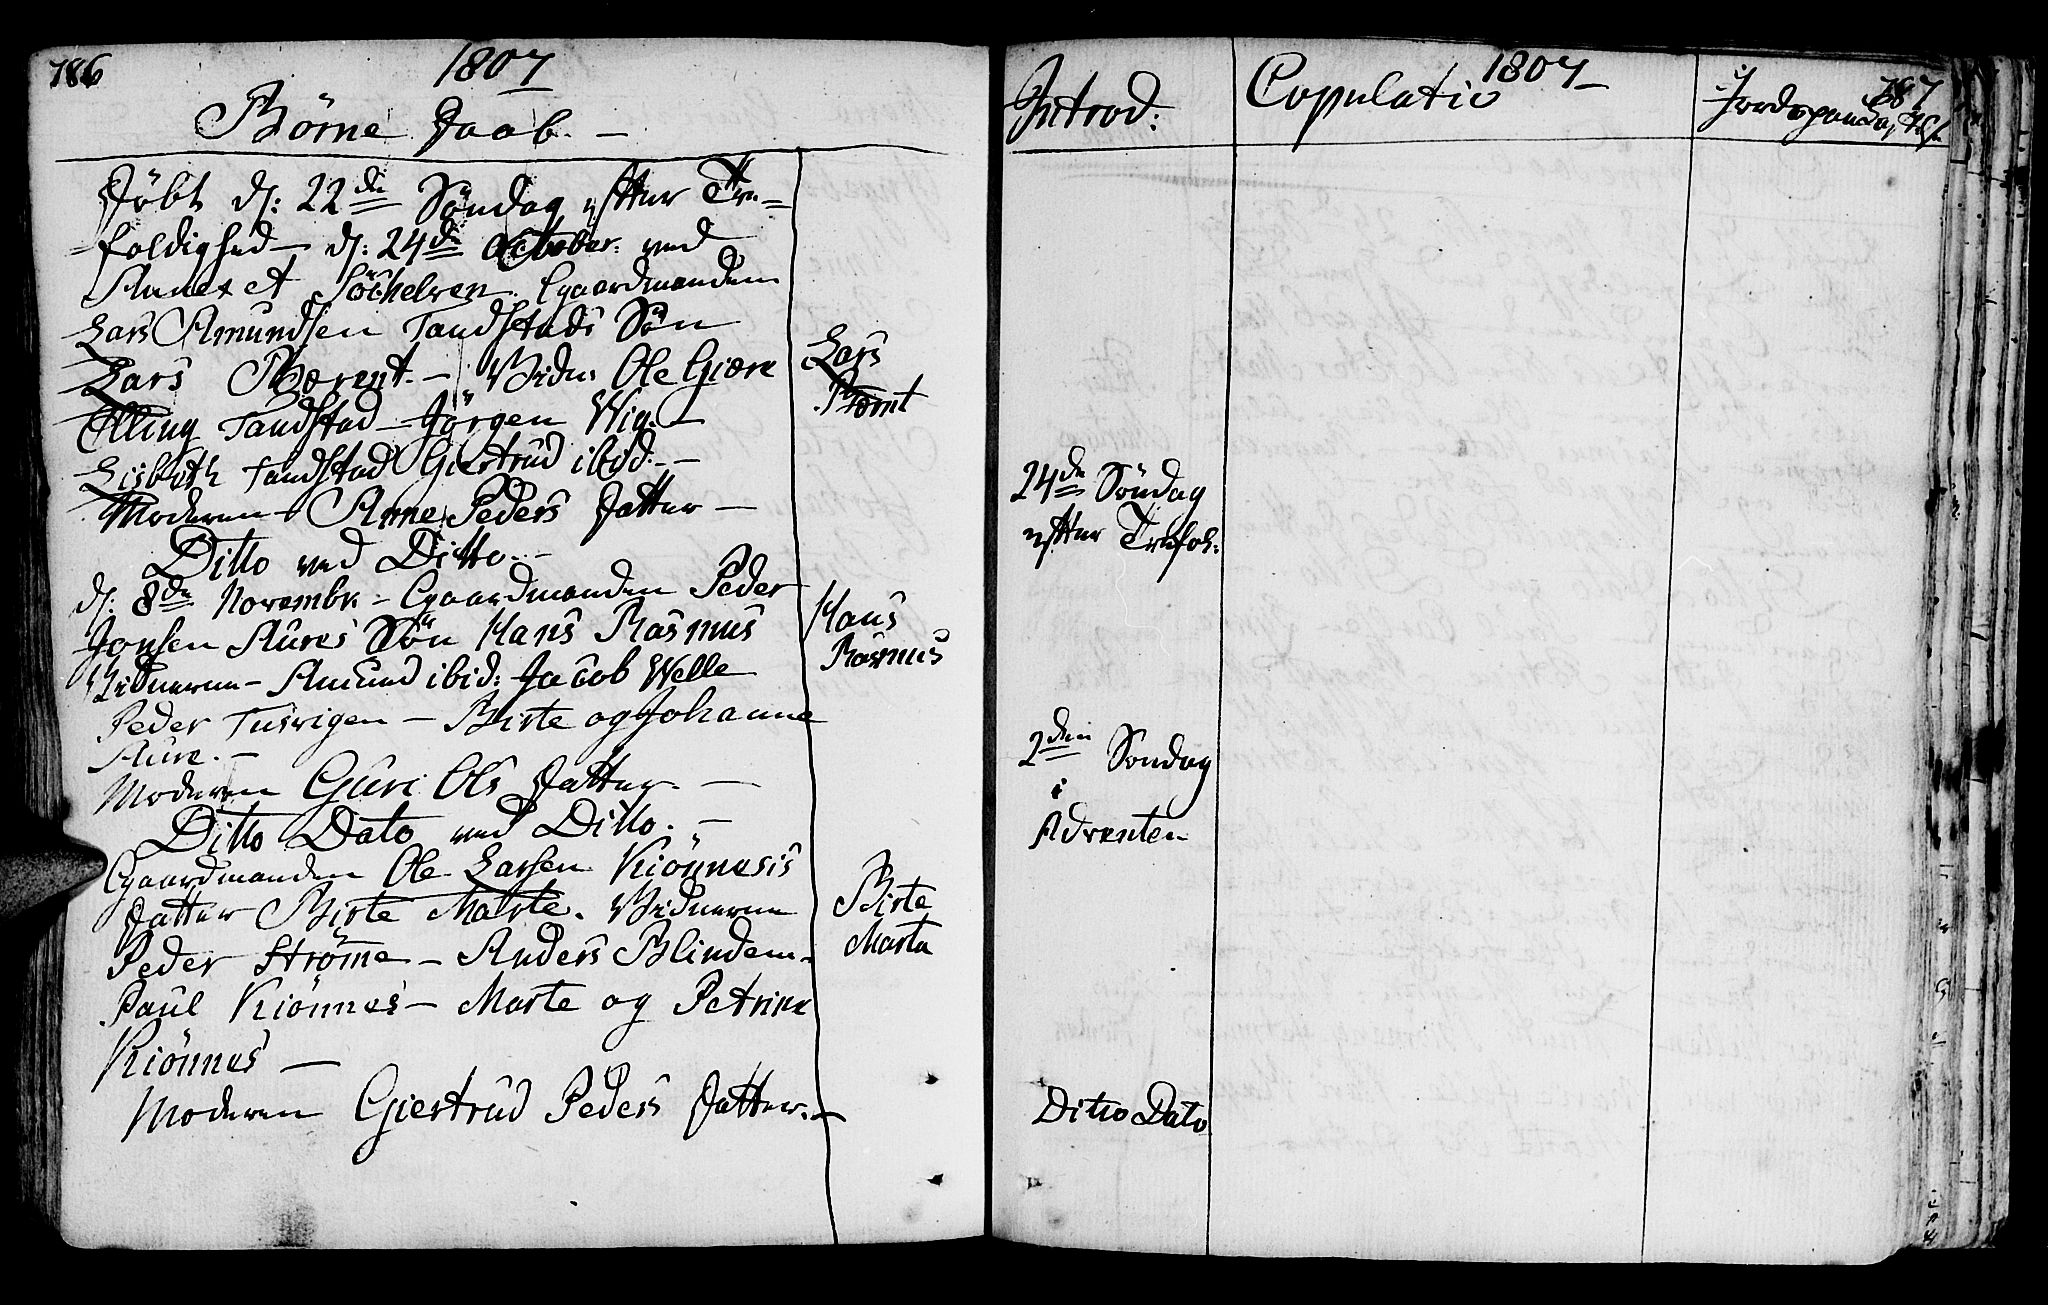 786
1807
Børne Daab. —
Døbt d: 22de Søndag efter Tre=
=foldighed — d: 24de October ved
Annexet Söchelven. Gaardmanden
Lars Amundsen Tandstads Søn
Lars Bærent. — Vidn: Ole Giære
Elling Tandstad — Jørgen Wig. —
Lisbeth Tandstad Giertrud ibid: —
Moderen — Anne Peders Datter —
Ditto ved Ditto. —
d: 8de Novembr. — Gaardmanden Peder
Jonsen Aures Søn Hans Rasmus
Vidnerne — Amund ibid: Jacob Welle
Peder Tusvigen — Birte og Johanne
Aure. —
Moderen Guri Ols Datter. —
Ditto Dato ved Ditto. —
Gaardmanden Ole Larsen Kiönnesis
Datter Birte Marte. Vidnerne
Peder Strømme — Anders Blindem.
Paul Kiönnes — Marte og Petrine
Kiönnes —
Moderen Giertrud Peders Datter. —
Lars
Bærnt
Hans
Rasmus
Birte
Marta
1807 —
787
Introd:
Copulatio
24de Søndag
efter Trefol:
2den Søndag
i
Adventen
Ditto Dato